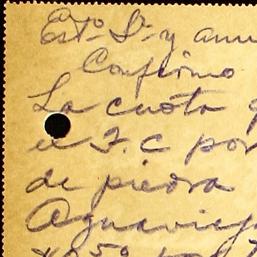 Esto Sr y ami
Confirmo
La cuota
el F.C por
de piedra
Aguaviej